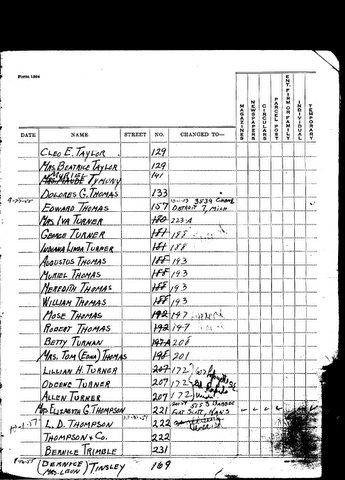 Form 1564
MAGAZINES
NEWSPAPERS
CIRCULARS
PARCEL POST
ENT. FIRM OR FAMILY
INDIVIDUAL
TEMPORARY
DATE NAME STREET NO. CHANGED TO—
CLEO E. TAYLOR 129
MRS. BEATRICE TAYLOR 129
MURIEL
MRS. MAUDE TYMONY 141
DOLORES G. THOMAS 133
EDWARD THOMAS 157 DETROIT 7, MICH
MRS. IVA TURNER 180 223-A
GEORGE TURNER 181 188
INDIANA LINDA TURNER 181 188
AUGUSTUS THOMAS 188 193
MURIEL THOMAS 188 193
MEREDITH THOMAS 188 193
WILLIAM THOMAS 188 193
MOSE THOMAS 192 197
ROBERT THOMAS 192 197
BETTY TURMAN 197A 208
MRS. TOM (EDNA) THOMAS 198 201
LILLIAN H. TURNER 207 172
ODDENE TURNER 207 172
ALLEN TURNER 207 172
MRS ELIZABETH G. THOMPSON 221 FORT SCOTT, KANS
L. D. THOMPSON 222
THOMPSON & CO. 222
BERNICE TRIMBLE 231
(BERNICE
MRS. LEON) TINSLEY 169